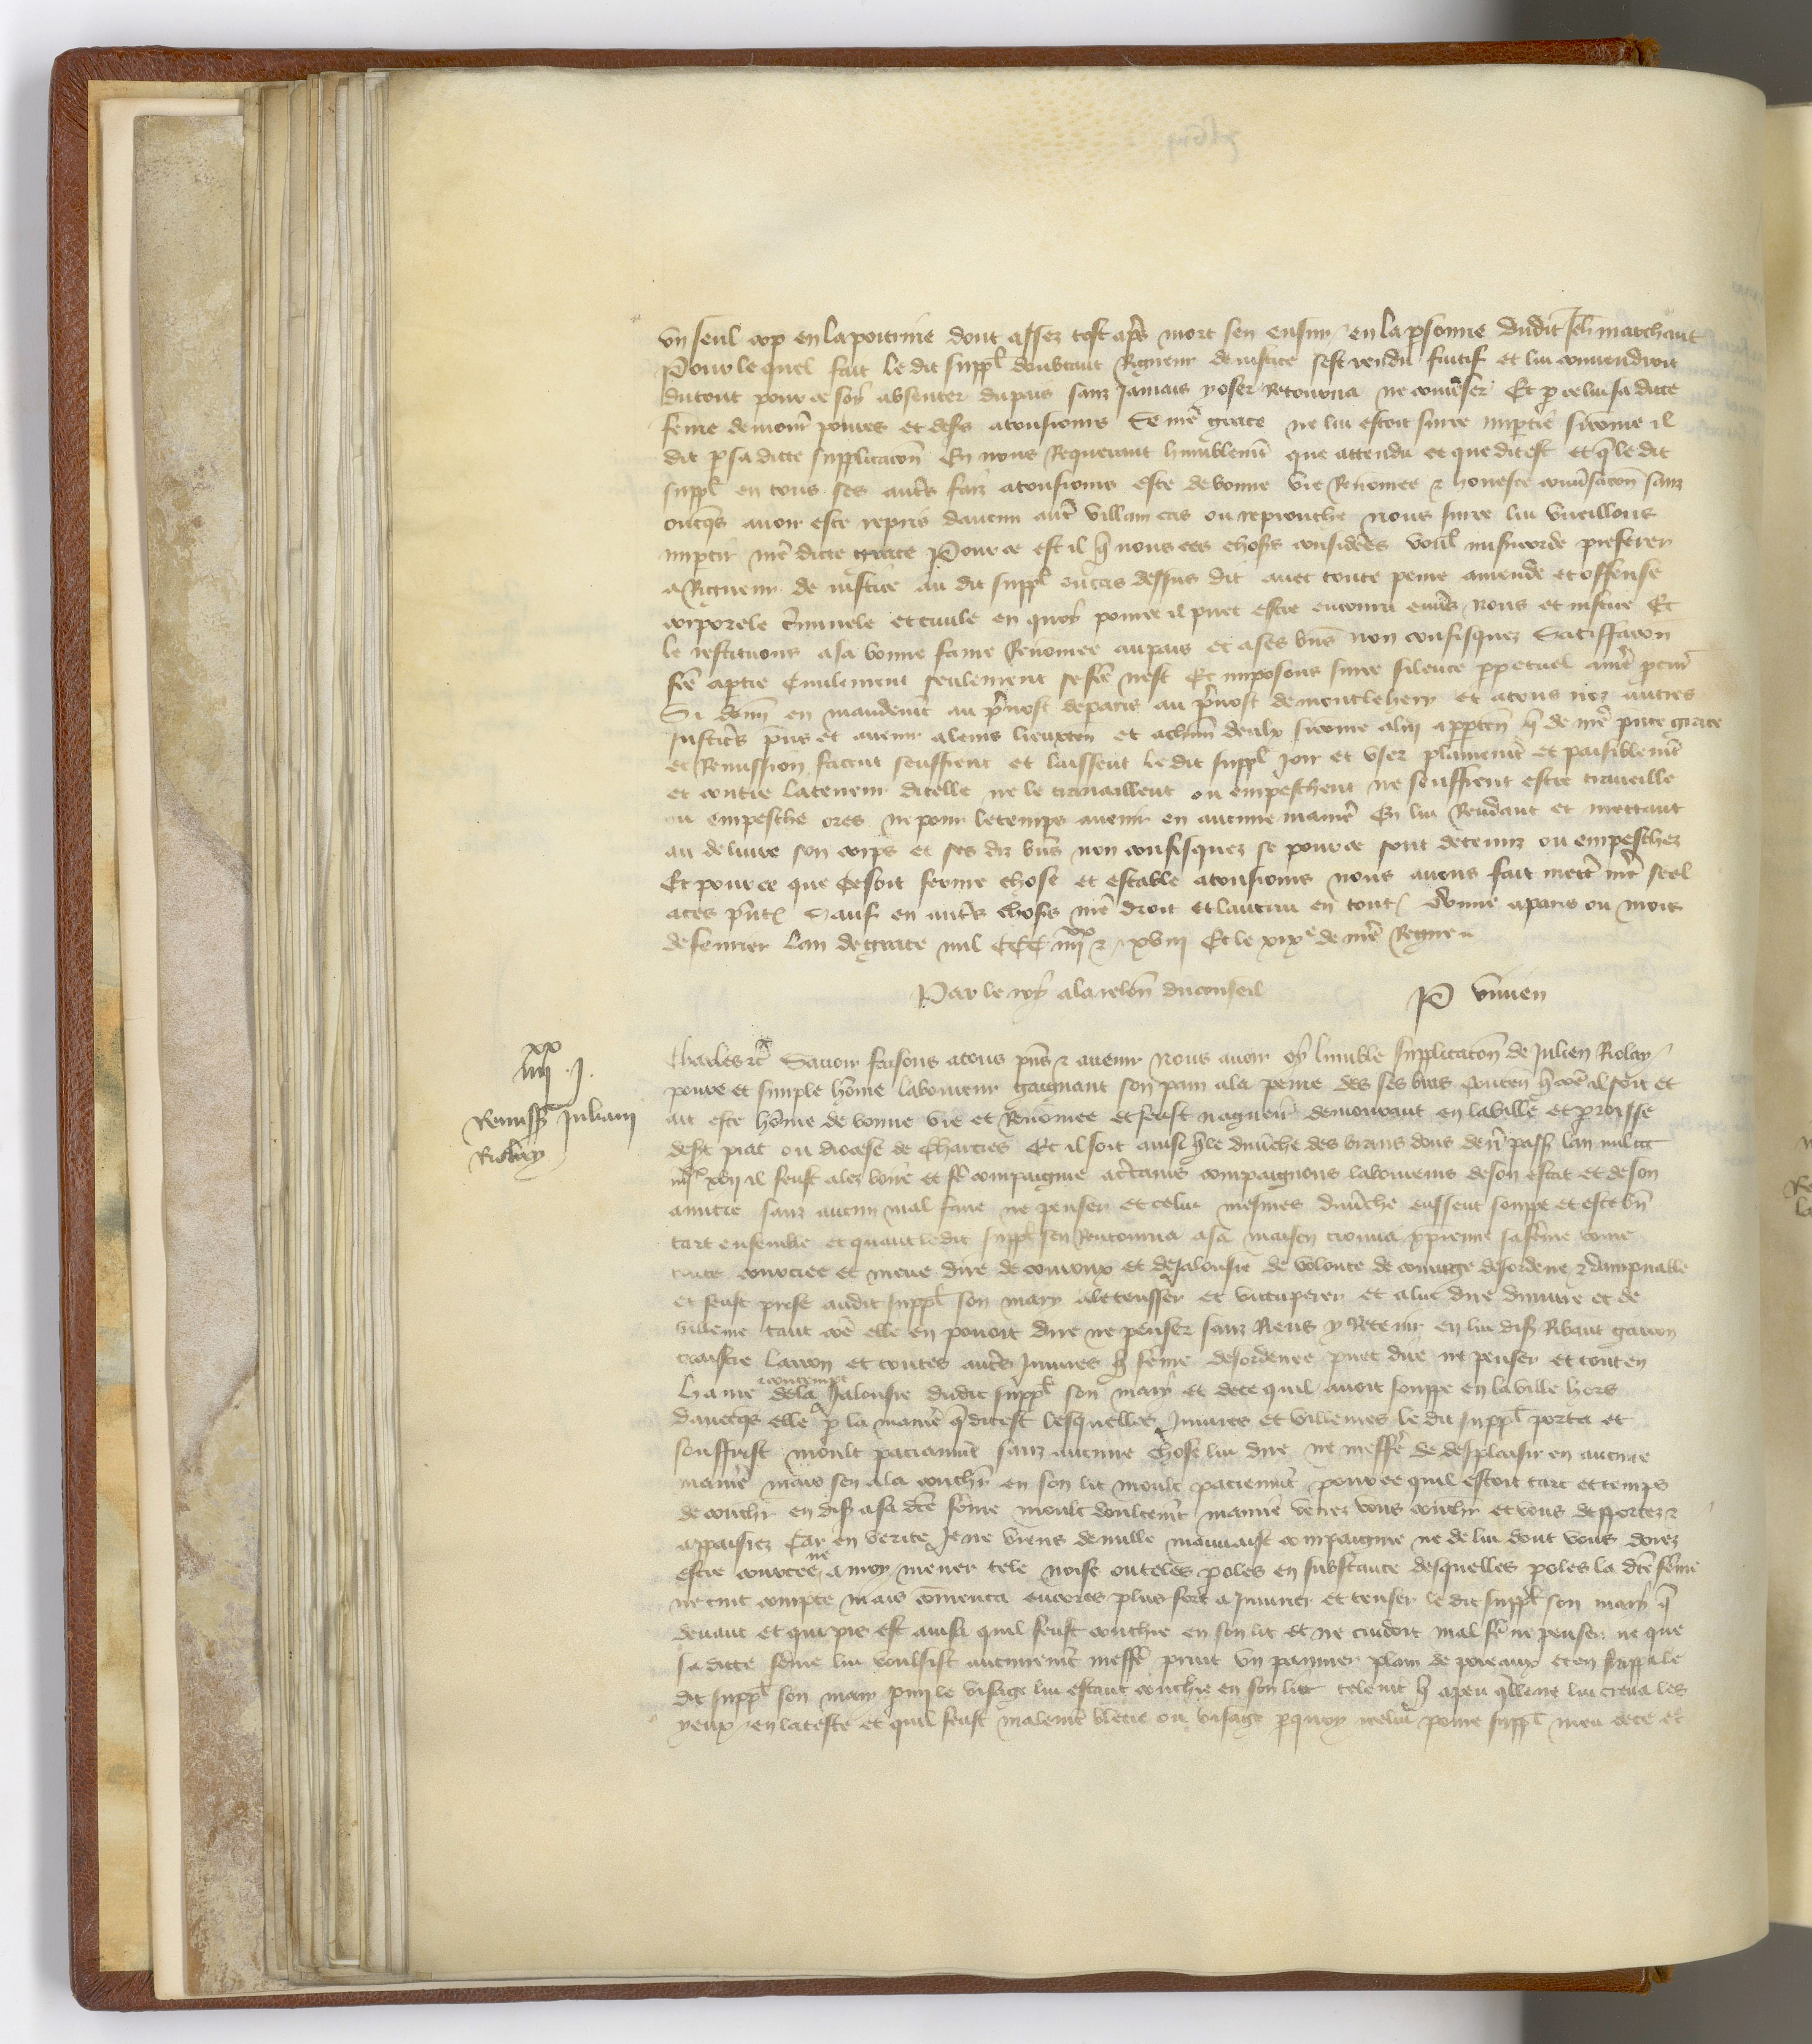 un seul cop en la poitrine dont assez tost apres mort sen ensuy en la personne dudit Jeh marchant
Pour le quel fait le dit suppl doubtant Rigueur de justice sest rendu fuitif et lui convendroit
du tout pour ce soy absenter du pais sanz Jamais y oser Retourna ne converser Et p ce lui sa dicte
feme povres et atousiours Se nre grace ne lui estoit surce impartie sicome il
dit p sa dicte supplicacon En nous Requerant humblement que attendu et que dit est et q le dit
suppl en tous ses autres faiz atousiours este de bonne vie Renomee & honeste conversacon sanz
oncqs avoir este repris daucun autre villain cas ou reprouche nous surce lui vueillons
impartir nre dicte grace Pour ce est il q nous ces choses considerees voul misericorde preferer
a Rigueur de justice au dit suppl ou cas dessus dit avec toute peine amende et offense
corporele criminele et civile en quoy pource il puet estre encouru envers nous et justice Et
le restituons a sa bonne fame Renomee au pais et a ses biens non confisquez Satiffacon
fce a partie civilement seulement se fce nest Et imposons surce silence ppetuel a nre procur
Si donn en mandemt au prevost de paris au prevost de montlehery et a tous noz autres
Justicrs pns et avenir a leurs lieuxten et a chun deulx sicome a lui apptendra q de nre pnte grace
et Remission facent seuffrent et laissent le dit suppl Joir et user plainemt et paisiblemt
et contre la teneur dicelle ne le travaillent ou empeschent ne seuffrent estre travaille
ou empesche ores ne pour le temps avenir en aucune maniere En lui Rendant et mettant
au delivre son corps et ses diz biens non confisquez se pour ce sont detenuz ou empeschez
Et pour ce que ce soit ferme chose et estable atousiours nous avons fait mettre nre seel
a ces pntes Sauf en autres choses nre droit et lautrui en toutes donne a paris ou mois
de fevrier lan de grace mil CCC iiijxx & xviij Et le xixe de nre Regne
Par le roy a la relon du conseil P
xx
iiij .J.
Remiss Juliani
Riolay
Charles &c Savoir faisons a tous pns & avenir nous avoir oy lumble supplicacon de Julien Riolay
povre et simple home laboureur gaignant son pain a la peine des ses bras conten q come il soit et
ait este home de bonne vie et Renomee et feust nagueres demourant en la ville et proisse
de st piat ou diocese de Chartres Et il soit ainsi q le dimenche des brans dons dern pass lan mil ccc
iiijxx xvij il feust alez boire et fe compaignie a certains compaignons laboureurs de son estat et de son
amitie sanz aucun mal faire ne penser et celui mesmes dimenche eussent soupe et este bn
tart ensemble et quant le dit suppl sen Retourna a sa maison trouva sa feme come
toute courciee et meue dire de courroux et de Jalousie de volente de courage desordene & dampnable
et feust prise audit suppl son mary a le tensser et vituperer et a lui dire dinjure et de
villenie tant come elle en povoit dire ne penser sanz Riens y Retenir en lui dist Ribaut garcon
traistre larron et toutes autres Injures q feme desordenee puet dire ne penser et tout en
haine & contempt de la Jalousie dudit suppl son mary et de ce quil avoit soupe en la ville hors
davecqs elle p la maniere q dit est lesquelles Injures et villenies le dit suppl porta et
souffrist moult paciamment sanz aucune chose lui dire ne meffe de desplaisir en aucune
maniere mais sen ala couchr en son lit moult paciemment pour ce quil estoit tart et temps
de couchr en dist a sa dce feme moult doulcemt mamie venez vous couchr et vous depportez &
appaisiez Car en verite Je ne viens de nulle mauvaise compaignie ne de lui dont vous doiez
estre courcee ne a moy mener tele noise ou teles poles en substance desquelles poles la dce feme
ne tint compte mais comenca encores plus fort a Injurier et tenser le dit suppl son mary q
devant et qui pis est ainsi quil feust couchie en son lit et ne cuidoit mal fe ne penser ne que
sa dicte feme lui voulsist aucunemt meffe print un pannier plain de poreaux et en frappa le
dit suppl son mary pmi le visage lui estant couchie en son lit telemt q a peu qlle ne lui creva les
yeux en la teste et quil feust malemt blecie ou visage pquoy icelui povre suppl meu de ce et